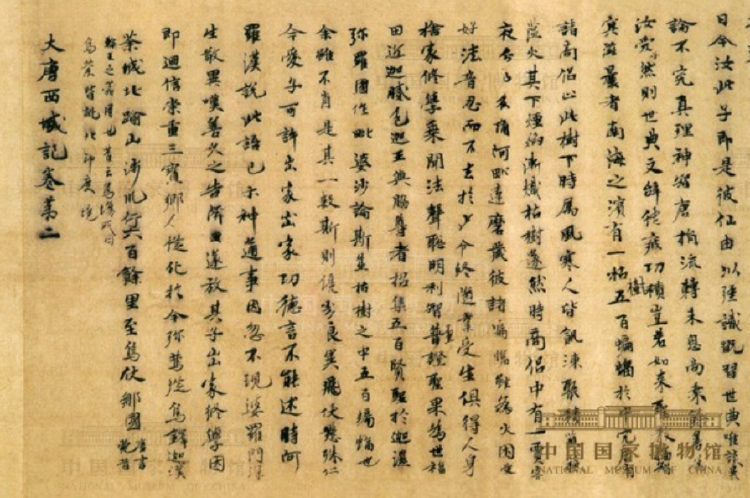 日今汝此子即是彼仙由以強識既習世典唯談異
論不究真理神智唐捐流轉未息尚乘餘善為
汝兒然則世典文辭徒疲功績豈若如來聖教智
冥滋曩者南海之濱有一枯樹五百蝙蝠於中穴居有
諸商侶止此樹下時屬風寒人皆飢凍聚積
蘊火其下煙焰漸熾枯樹遂然時商侶中有一賈客
夜分已後誦阿毗達磨藏彼諸蝙蝠雖為火困愛
好法音忍而不去於夕命終隨業受生俱得人身
捨家修學乘聞法聲聰明利智普證聖果為世福
田近迦膩色迦王與脇尊者招集五百賢聖於迦濕
彌羅國作毗婆沙論斯並枯樹之中五百蝙蝠也
余雖不肖是其一數斯則優劣良異飛伏懸殊仁
今愛子可許出家出家功德言不能述時阿
羅漢說此語已示神通事因忽不現婆羅門深
生敬異嘆善久之告隣里遂放其子出家修學因
即迴信崇重三寶鄉人從化於今彌篤從烏鐸迦漢
荼城北踰山涉川行六百餘里至烏仗那國唐言苑昔
輪王之苑囿也舊云烏場或曰
烏荼皆訛北印度境
大唐西域記卷第二
中国国家博物馆
NATIONAL MUSEUM OF CHINA